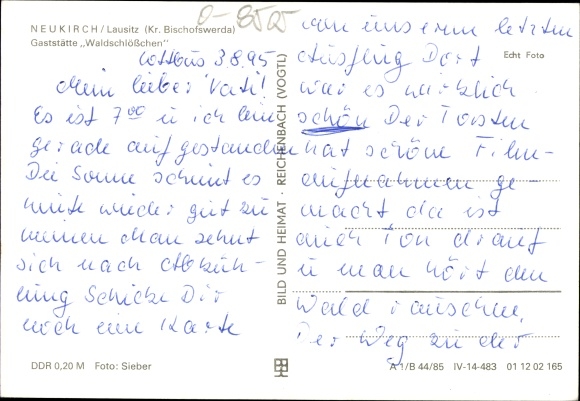 0-8525
NEUKIRCH / Lausitz (Kr. Bischofswerda)
Gaststätte „Waldschlößchen"
Echt Foto
Cottbus 3.8.95
Mein lieber Vati!
Es ist 7⁰⁰ u ich bin
gerade aufgestanden
Die Sonne scheint es
heute wieder gut zu
meinen Man sehnt
sich nach Abküh-
lung Schicke Dir
noch eine Karte
von unserem letzten
Ausflug Dort
war es wirklich
schön Der Torsten
hat schöne Film-
aufnahmen ge-
macht da ist
auch Ton drauf
u man hört den
Wald rauschen.
Der Weg zu der
BILD UND HEIMAT · REICHENBACH (VOGTL)
DDR 0,20 M Foto: Sieber
A 1/B 44/85 IV-14-483 01 12 02 165